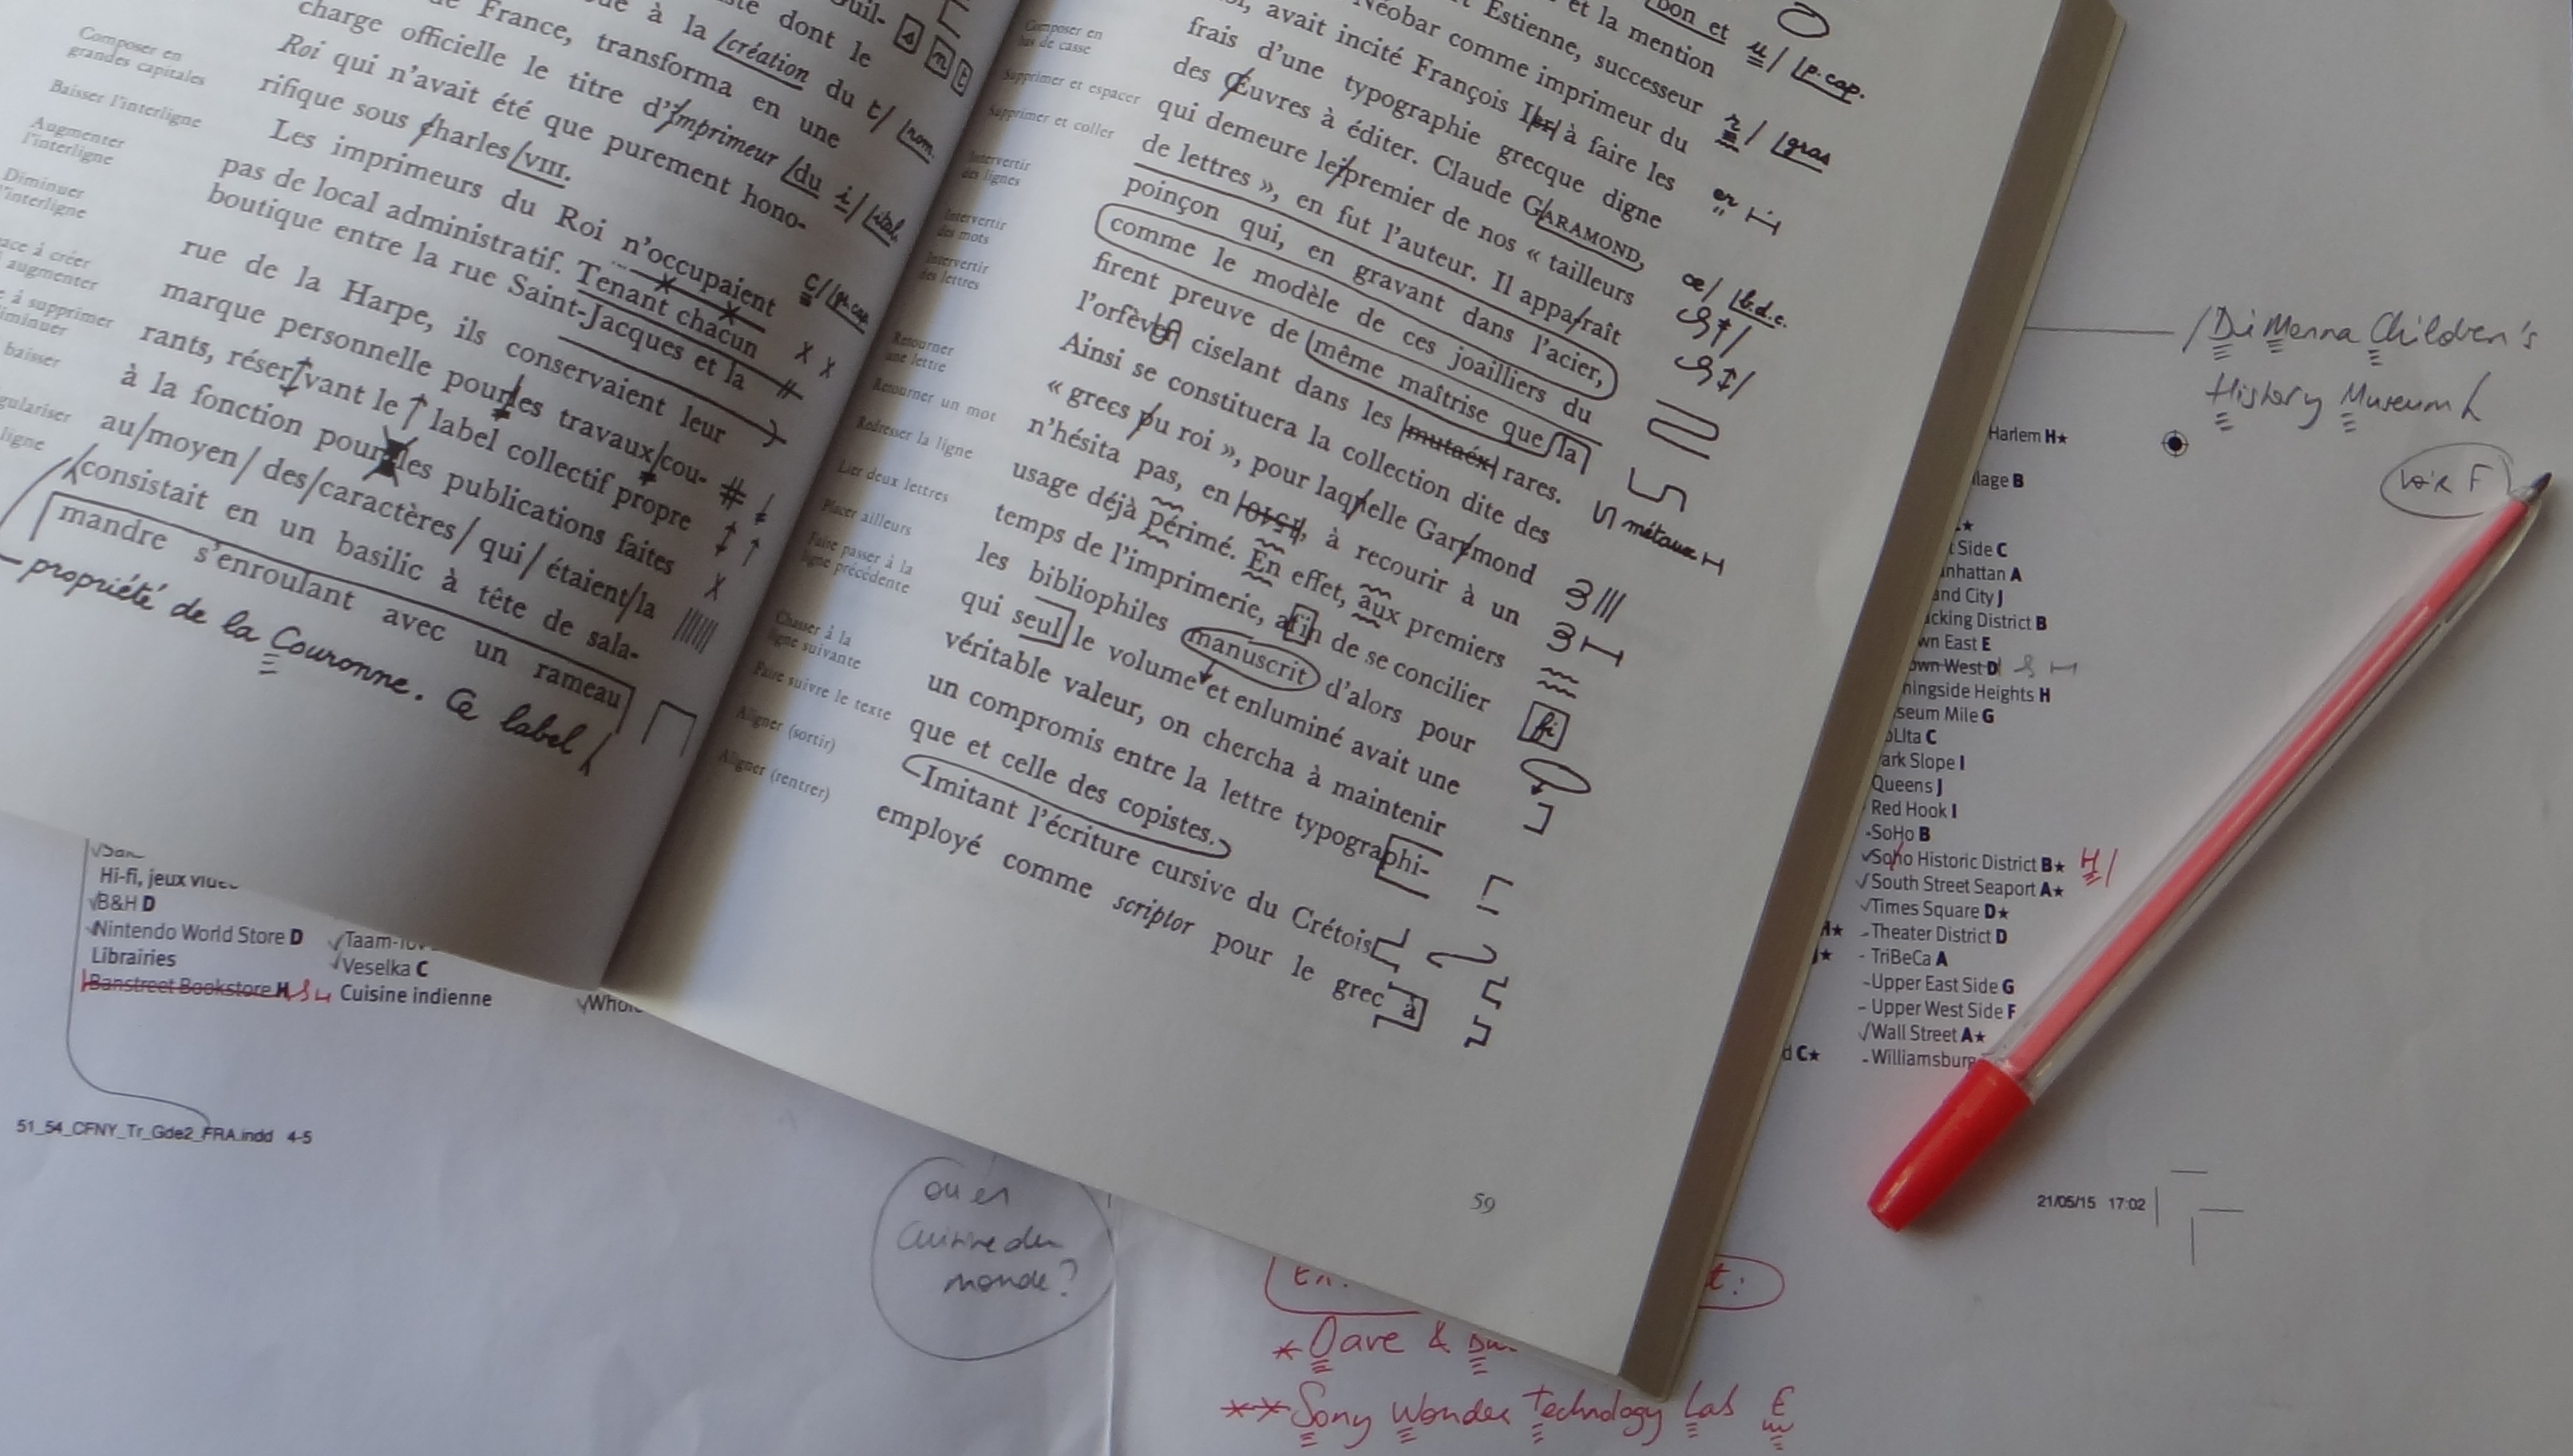 Composer en
grandes capitales
Baisser l'interligne
Augmenter
l'interligne
Diminuer
à supprimer
baisser
ligne
dont le
à la création du t/ rom.
France, transforma en une
charge officielle le titre d'Imprimeur du i/ ital.
Roi qui n'avait été que purement hono-
rifique sous charles VIII. C/ gr. cap.
Les imprimeurs du Roi n'occupaient
pas de local administratif. Tenant chacun
boutique entre la rue Saint-Jacques et la
rue de la Harpe, ils conservaient leur
marque personnelle pour les travaux cou-
rants, réservant le label collectif propre
à la fonction pour les publications faites
au/moyen/des/caractères/qui/étaient/la
consistait en un basilic à tête de sala-
mandre s'enroulant avec un rameau
propriété de la Couronne. Ce label
Composer en
bas de casse
Supprimer et espacer
Supprimer et coller
Intervertir
des lignes
Intervertir
des mots
Intervertir
des lettres
Retourner
une lettre
Retourner un mot
Redresser la ligne
Lier deux lettres
Placer ailleurs
Faire passer à la
ligne précédente
Chasser à la
ligne suivante
Faire suivre le texte
Aligner (sortir)
Aligner (rentrer)
bon et u/ p. cap.
et la mention
Estienne, successeur r/ gras
Néobar comme imprimeur du
avait incité François Ier à faire les er
frais d'une typographie grecque digne
des Œuvres à éditer. Claude GARAMOND, œ/ b.d.c.
qui demeure le premier de nos « tailleurs
de lettres », en fut l'auteur. Il apparaît
poinçon qui, en gravant dans l'acier,
comme le modèle de ces joailliers du
firent preuve de même maîtrise que la
l'orfèver ciselant dans les mutaéx rares. métaux
Ainsi se constituera la collection dite des
« grecs du roi », pour laquelle Garamond
n'hésita pas, en 1540, à recourir à un
usage déjà périmé. En effet, aux premiers
temps de l'imprimerie, afin de se concilier fi
les bibliophiles manuscrit d'alors pour
qui seul le volume et enluminé avait une
véritable valeur, on chercha à maintenir
un compromis entre la lettre typographi-
que et celle des copistes.
Imitant l'écriture cursive du Crétois
employé comme scriptor pour le grec à
59
/Di Menna Children's
History Museum
voir F
Harlem H★
lage B
Side C
nhattan A
and City J
acking District B
wn East E
own West D
ningside Heights H
seum Mile G
oLIta C
ark Slope I
Queens J
- Red Hook I
-SoHo B
√Soho Historic District B★ H/
√South Street Seaport A★
√Times Square D★
- Theater District D
- TriBeCa A
-Upper East Side G
- Upper West Side F
√Wall Street A★
d C★ - Williamsburg
21/05/15 17:02
Hi-fi, jeux vidéo
√B&H D
√Nintendo World Store D
Librairies
Banstreet Bookstore H
√Veselka C
Cuisine indienne
51_54_CFNY_Tr_Gde2_FRA.indd 4-5
ou en
cuisine du
monde?
* Dave &
** Sony Wonder Technology Lab E